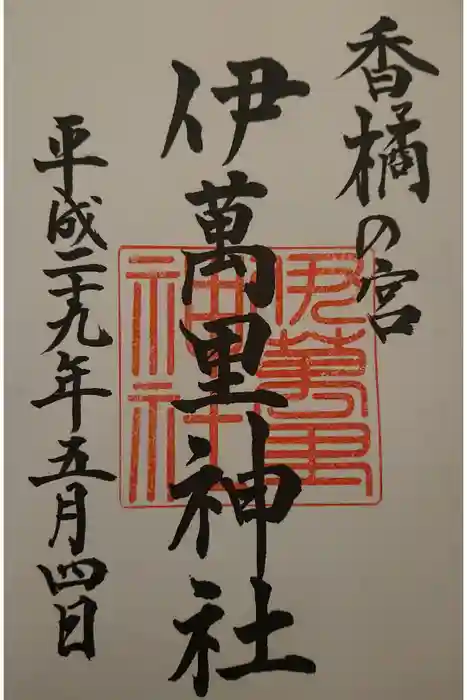 香橘の宮
伊萬里神社
伊萬里
神社
平成二十九年五月四日